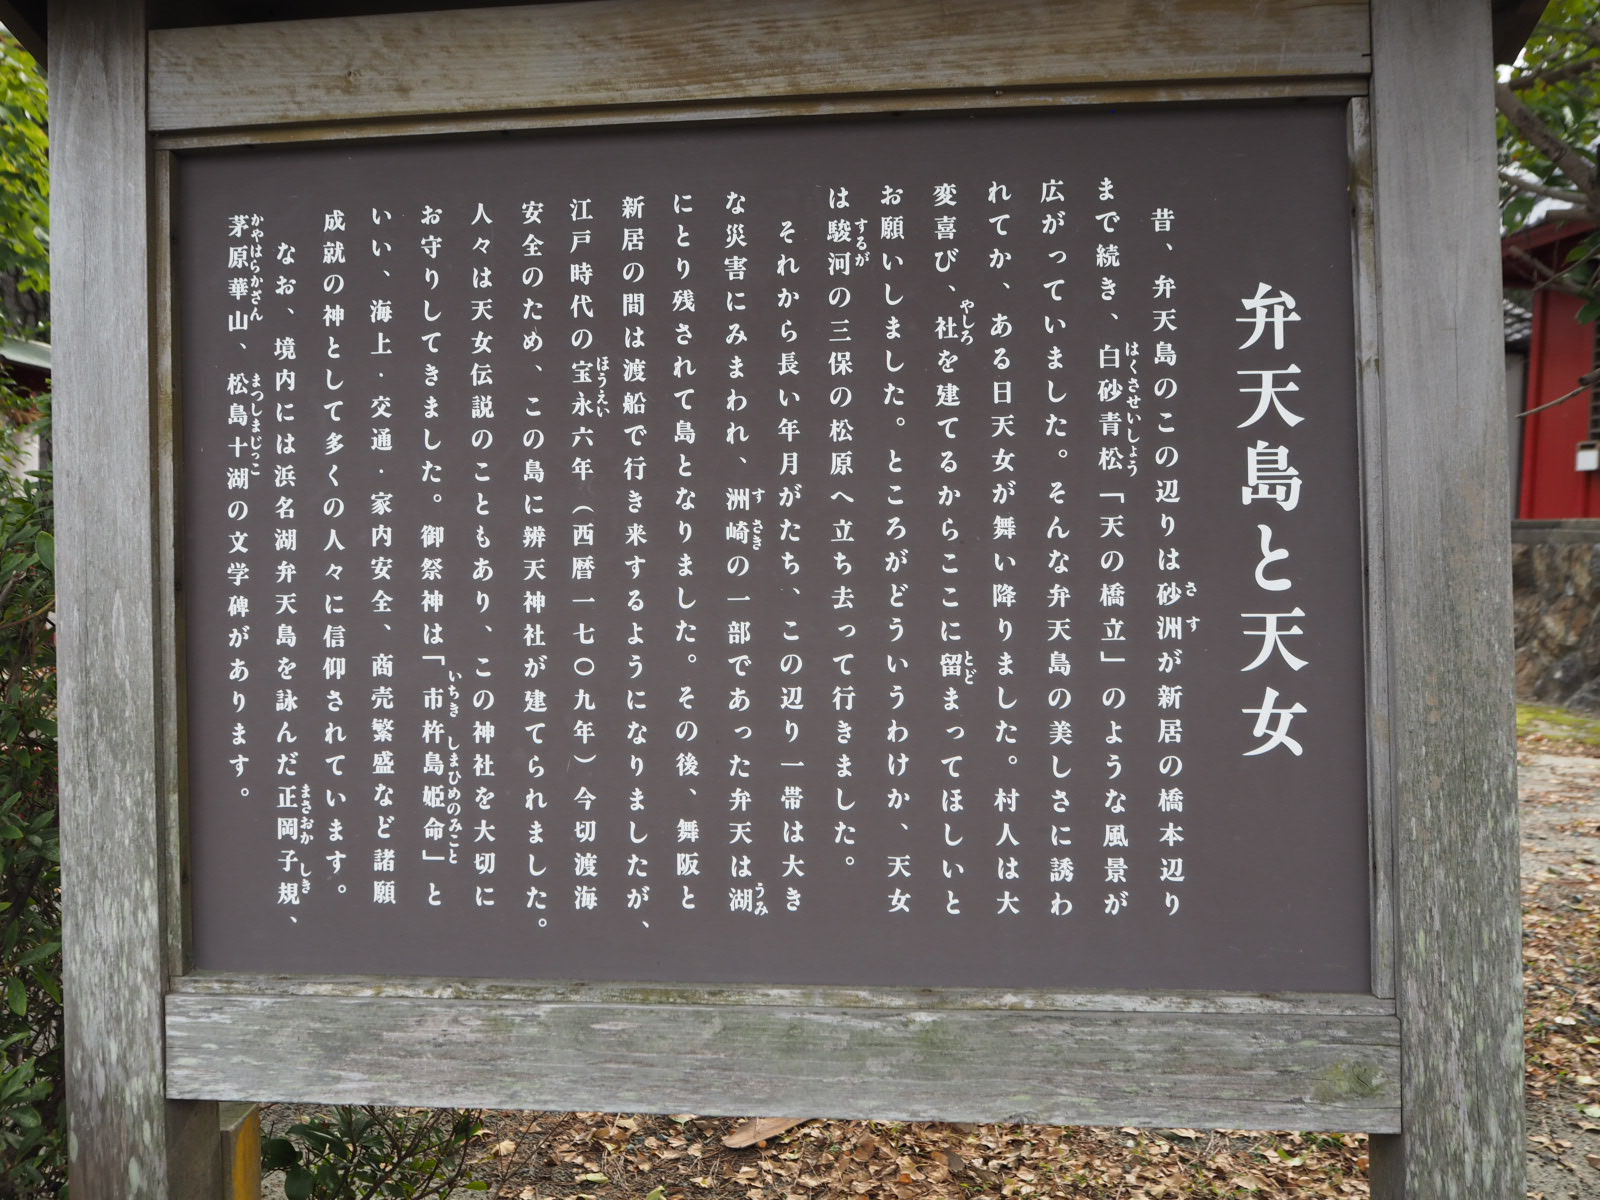 弁天島と天女
昔、弁天島のこの辺りは砂洲が新居の橋本辺り
まで続き、白砂青松「天の橋立」のような風景が
広がっていました。そんな弁天島の美しさに誘わ
れてか、ある日天女が舞い降りました。村人は大
変喜び、社を建てるからここに留まってほしいと
お願いしました。ところがどういうわけか、天女
は駿河の三保の松原へ立ち去って行きました。
それから長い年月がたち、この辺り一帯は大き
な災害にみまわれ、洲崎の一部であった弁天は湖
にとり残されて島となりました。その後、舞阪と
新居の間は渡船で行き来するようになりましたが、
江戸時代の宝永六年(西暦一七〇九年)今切渡海
安全のため、この島に辨天神社が建てられました。
人々は天女伝説のこともあり、この神社を大切に
お守りしてきました。御祭神は「市杵島姫命」と
いい、海上・交通・家内安全、商売繁盛など諸願
成就の神として多くの人々に信仰されています。
なお、境内には浜名湖弁天島を詠んだ正岡子規、
茅原華山、松島十湖の文学碑があります。